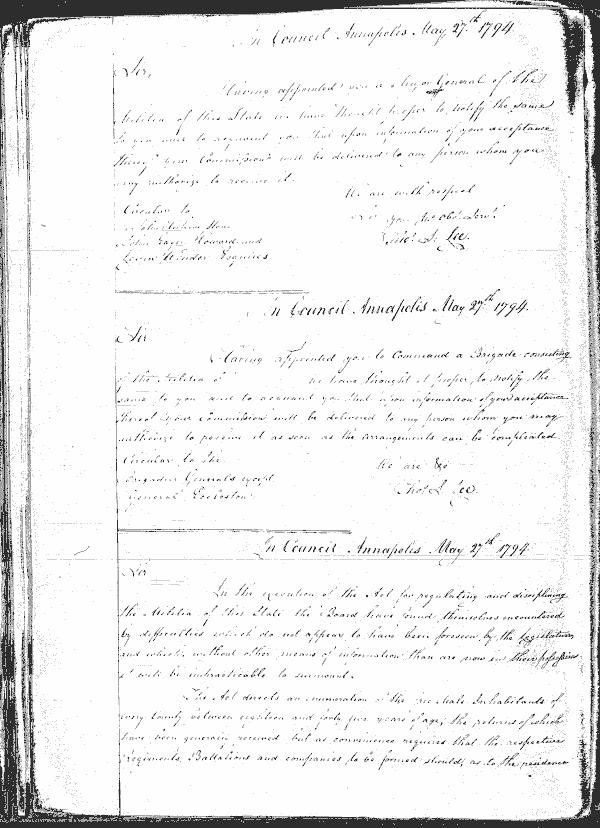 In Council Annapolis May 27.th 1794
Sir,
Having appointed you a Major General of the
Militia of this State we have thought proper to notify the same
to you and to acquaint you that upon information of your acceptance
thereof your Commission will be delivered to any person whom you
may authorize to receive it.
We are with respect
Circular to
yr Mo Obt. Servt.
Stone
John Eager Howard and
Thos. S. Lee.
Levin Winder Esquires
In Council Annapolis May 27.th 1794.
Sir
Having appointed you to Command a Brigade consisting
of the Militia of we have thought it proper to notify the
same to you and to acquaint you that upon information of your acceptance
thereof your Commission will be delivered to any person whom you may
authorize to receive it as soon as the arrangements can be compleated
Circular to the
We are &c
Brigadier Generals except
Thos. S. Lee.
General Eccleston
In Council Annapolis May 27th 1794
Sir
In the execution of the Act for regulating and disciplining
the Militia of this State the Board have found themselves encountered
by difficulties which do not appear to have been foreseen by the legislature
and which, without other means of information than are now in their possession
it will be impracticable to surmount.
The Act directs an enumeration of the free Male Inhabitants of
every County between eighteen and forty five years of age, the returns of which
have been generally received but as convenience requires that the respective
Regiments, Battalions and companies to be formed should, as to the residence